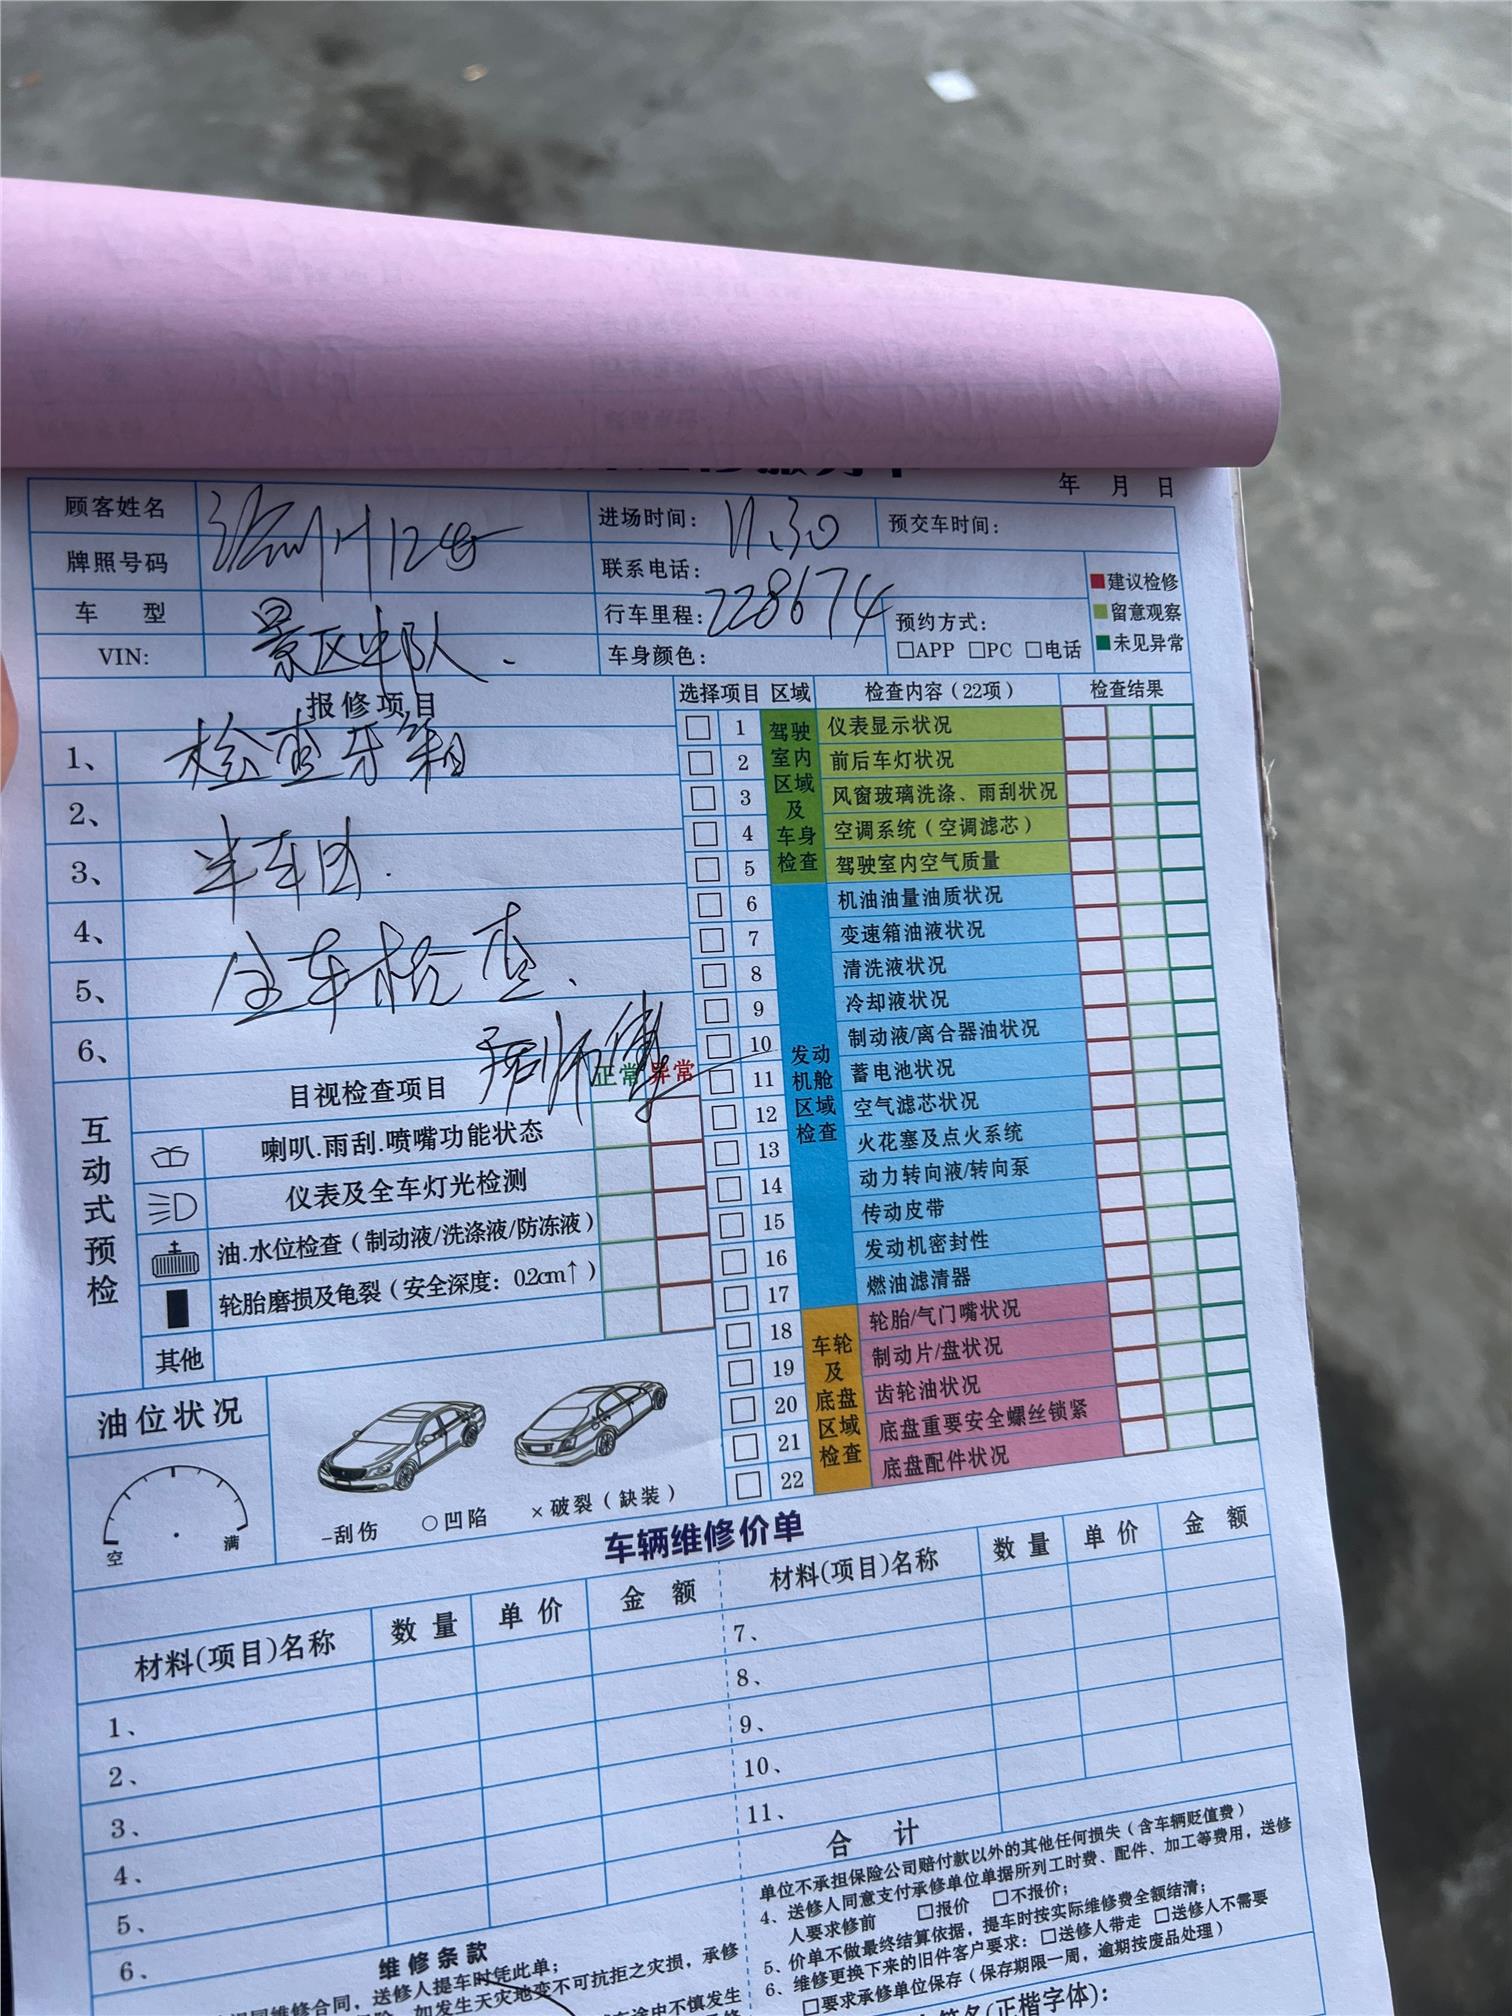 年 月 日
顾客姓名
进场时间: 11.30 预交车时间:
牌照号码
联系电话:
车 型 景区中队.
行车里程: 228674
VIN:
车身颜色:
预约方式:
□APP □PC □电话
建议检修
留意观察
未见异常
报修项目
1、 检查牙箱
2、
3、
4、
5、 全车检查、
6、
师傅
选择项目 区域 检查内容（22项） 检查结果
驾驶室内区域及车身检查
1 仪表显示状况
2 前后车灯状况
3 风窗玻璃洗涤、雨刮状况
4 空调系统（空调滤芯）
5 驾驶室内空气质量
发动机舱区域检查
6 机油油量油质状况
7 变速箱油液状况
8 清洗液状况
9 冷却液状况
10 制动液/离合器油状况
11 蓄电池状况
12 空气滤芯状况
13 火花塞及点火系统
14 动力转向液/转向泵
15 传动皮带
16 发动机密封性
17 燃油滤清器
车轮及底盘区域检查
18 轮胎/气门嘴状况
19 制动片/盘状况
20 齿轮油状况
21 底盘重要安全螺丝锁紧
22 底盘配件状况
互动式预检
目视检查项目 正常 异常
喇叭.雨刮.喷嘴功能状态
仪表及全车灯光检测
油.水位检查（制动液/洗涤液/防冻液）
轮胎磨损及龟裂（安全深度：0.2cm↑）
其他
油位状况
空 满
-刮伤 ○凹陷 ×破裂（缺装）
车辆维修价单
材料(项目)名称 数量 单价 金额
材料(项目)名称 数量 单价 金额
1、
2、
3、
4、
5、
6、
7、
8、
9、
10、
11、
合 计
维修条款
维修合同，送修人提车时凭此单；
如发生天灾地变不可抗拒之灾损，承修
单位不承担保险公司赔付款以外的其他任何损失（含车辆贬值费）
4、送修人同意支付承修单位单据所列工时费、配件、加工等费用，送修
人要求修前 □报价 □不报价；
5、价单不做最终结算依据，提车时按实际维修费全额结清；
6、维修更换下来的旧件客户要求：□送修人带走 □送修人不需要
□要求承修单位保存（保存期限一周，逾期按废品处理）
签名(正楷字体)：